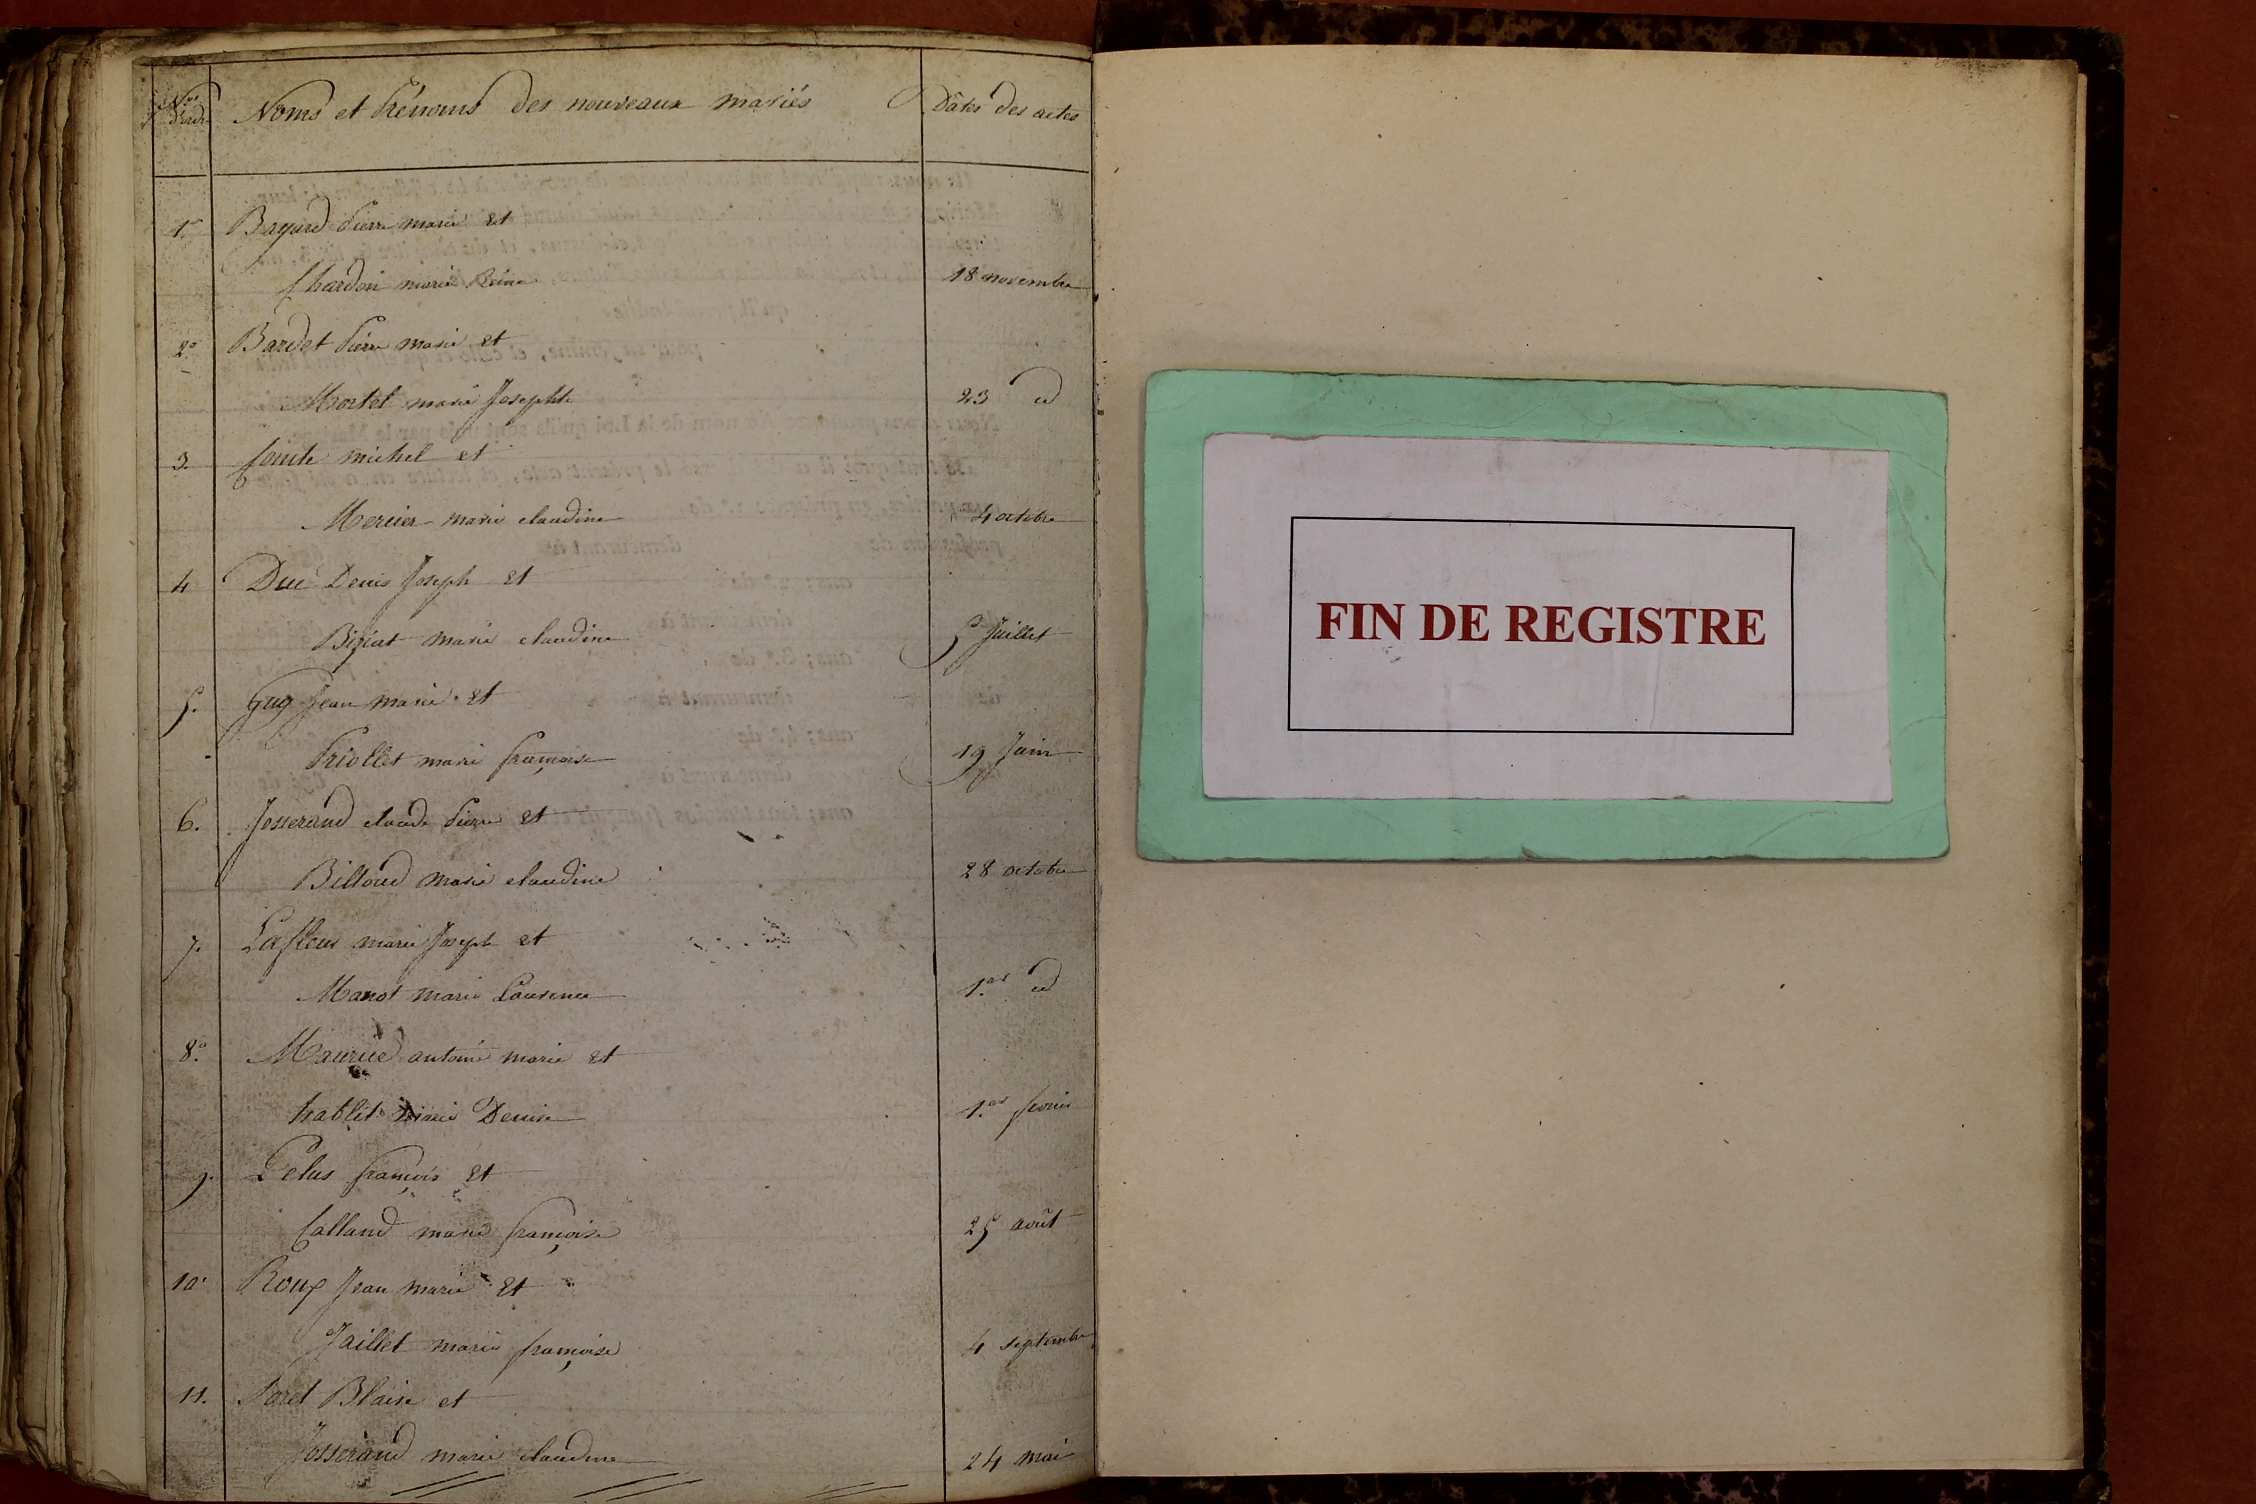 Nos d'ordre Noms et Prénoms des nouveaux mariés Dates des actes
1.º Bayard Pierre marie et
Chardon marie Reine 18 novembre
2.º Bardet Pierre marie et
Mortel marie Josephte 23 id
3. Comte michel et
Mercier marie claudine 4 octobre
4 Duc Denis Joseph et
Biziat marie claudine 5 Juillet
5. Guy Jean marie et
Priollet marie françoise 19 Juin
6. Josserand claude Pierre et
Billoud marie claudine 28 octobre
7. Lafleur marie Joseph et
Manot marie Laurence 1.er id
8.º Maurice antoine marie et
hablit marie Denise 1.er fevrier
9. Pelus françois et
Calland marie françoise 25 août
10. Roux Jean marie et
Jaillet marie françoise 4 septembre
11. Soret Blaise et
Josserand marie claudine 24 mai
FIN DE REGISTRE